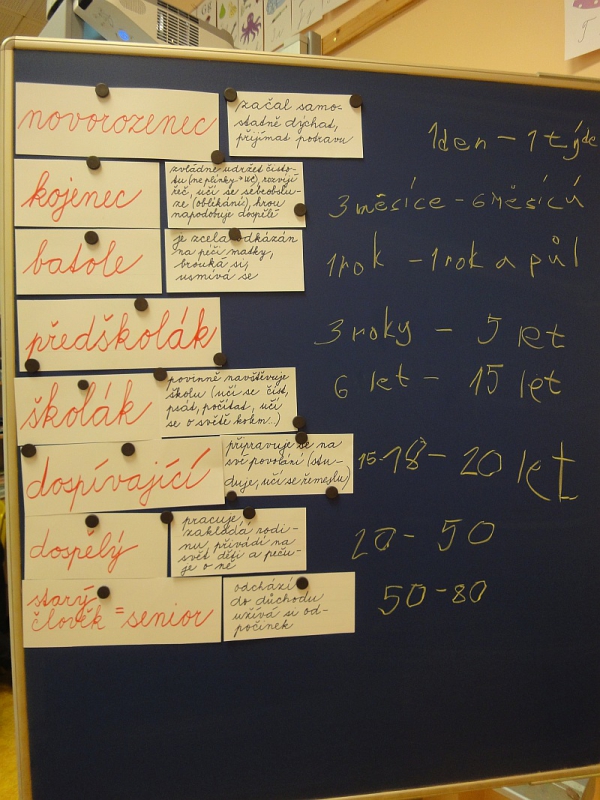 novorozenec
začal samo-
statně dýchat,
přijímat potravu
1den - 1 týde
kojenec
zvládne udržet čisto-
tu (ne plínky → WC), rozvíjí
řeč, učí se sebeobslu-
ze (oblíkání), hrou
napodobuje dospělé
3 měsíce - 6 měsíců
batole
je zcela odkázán
na péči matky,
brouká si,
usmívá se
1 rok - 1 rok a půl
předškolák
3 roky - 5 let
školák
povinně navštěvuje
školu (učí se číst,
psát, počítat, učí
se o světě kolem...)
6 let - 15 let
dospívající
připravuje se na
své povolání (stu-
duje, učí se řemeslu)
15-18 - 20 let
dospělý
pracuje,
zakládá rodi-
nu přivádí na
svět děti a peču-
je o ně
20 - 50
starý
člověk = senior
odchází
do důchodu
užívá si od-
počinek
50 - 80